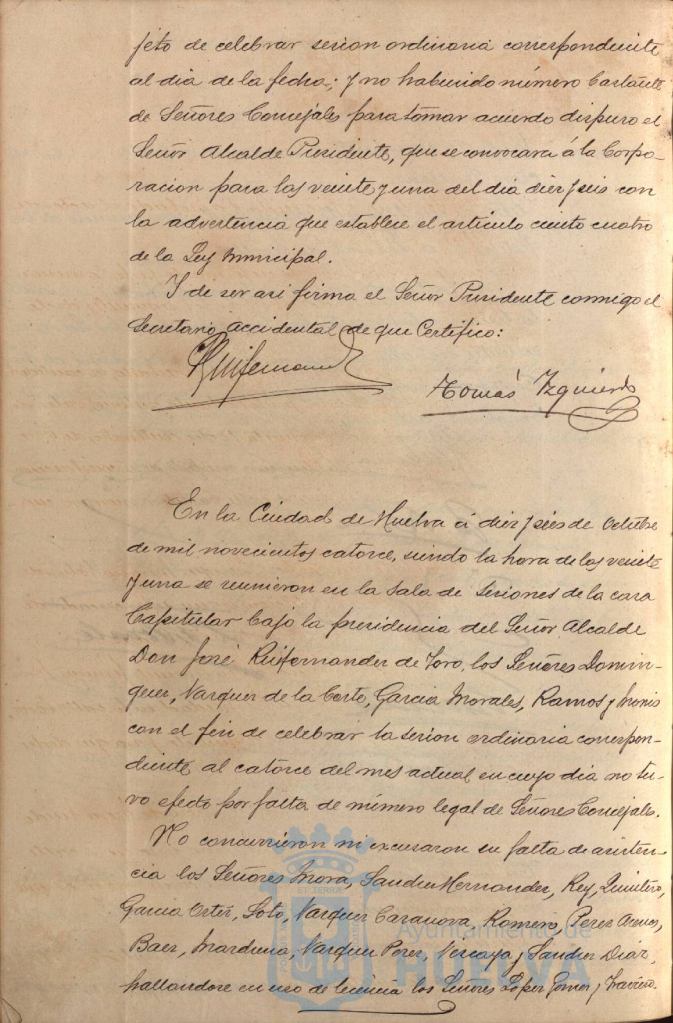 jeto de celebrar sesion ordinaria correspondiente
al dia de la fecha; y no habiendo número bastante
de Señores Concejales para tomar acuerdo dispuso el
Señor Alcalde Presidente, que se convocara á la Corpo-
racion para las veinte y una del dia diez y seis con
la advertencia que establece el artículo ciento cuatro
de la Ley Municipal.
Y de ser asi firma el Señor Presidente conmigo el
Secretario accidental de que Certifico:
Tomás Izquierdo
En la Ciudad de Huelva á diez y seis de Octubre
de mil novecientos catorce, siendo la hora de las veinte
y una se reunieron en la Sala de Sesiones de la casa
Capitular bajo la presidencia del Señor Alcalde
Don José Ruifernandez de Toro, los Señores Domin-
guez, Vazquez de la Corte, Garcia Morales, Ramos y Monis
con el fin de celebrar la sesion ordinaria correspon-
diente al catorce del mes actual en cuyo dia no tu-
vo efecto por falta de número legal de Señores Concejales.
No concurrieron ni excusaron su falta de asisten-
cia los Señores Mora, Sanchez Hernandez, Rey, Quintero,
Garcia Ortiz, Soto, Vazquez Casanova, Romero, Perez
Baez, Vazquez Perez, Vizcaya y Sanchez Diaz,
hallandose en uso de licencia los Señores López Gomez y
Ayuntamiento de
HUELVA